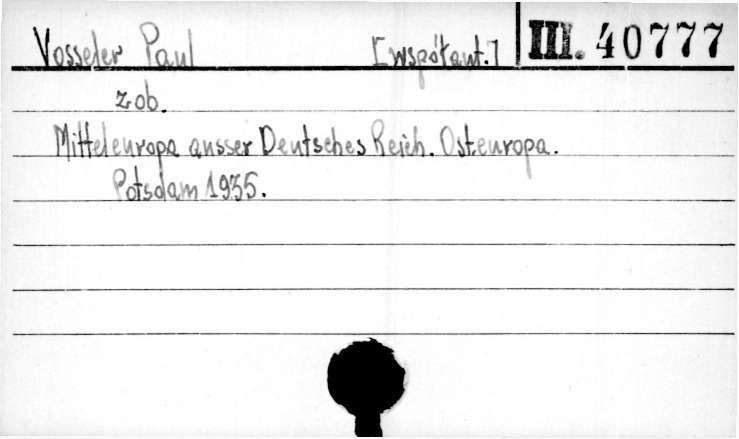 Vosseler Paul [współaut.] III. 40777
zob.
Mitteleuropa ausser Deutsches Reich. Osteuropa.
Potsdam 1935.